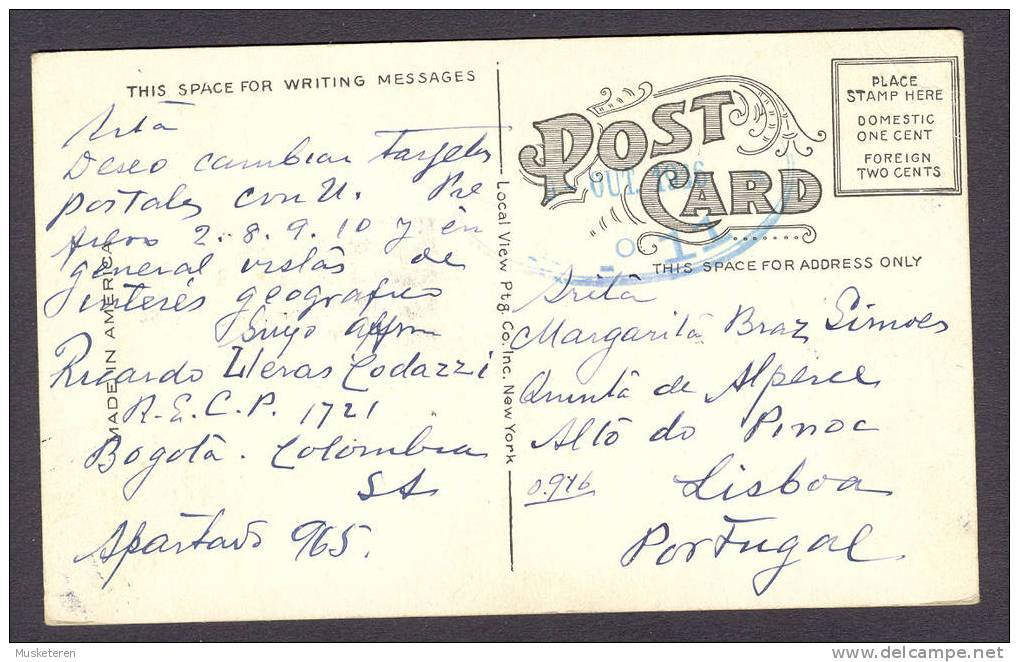 THIS SPACE FOR WRITING MESSAGES
Deseo cambiar targetas
postales con U. Pre
2. 8. 9. 10 y en
general vistas de
interés geografico
Suyo affmo
Ricardo Lleras Codazzi
R.E.C.P. 1721
Bogotá. Colombia
SA
Apartado 965.
MADE IN AMERICA
Local View Ptg. Co. Inc. New York
POST
CARD
PLACE
STAMP HERE
DOMESTIC
ONE CENT
FOREIGN
TWO CENTS
OUT. 1946
11
THIS SPACE FOR ADDRESS ONLY
Srita
Margarita Braz Simoes
Quinta de Alperce
Alto do Pinoc
0.946
Lisboa
Portugal
Musketeren
www.delcampe.net